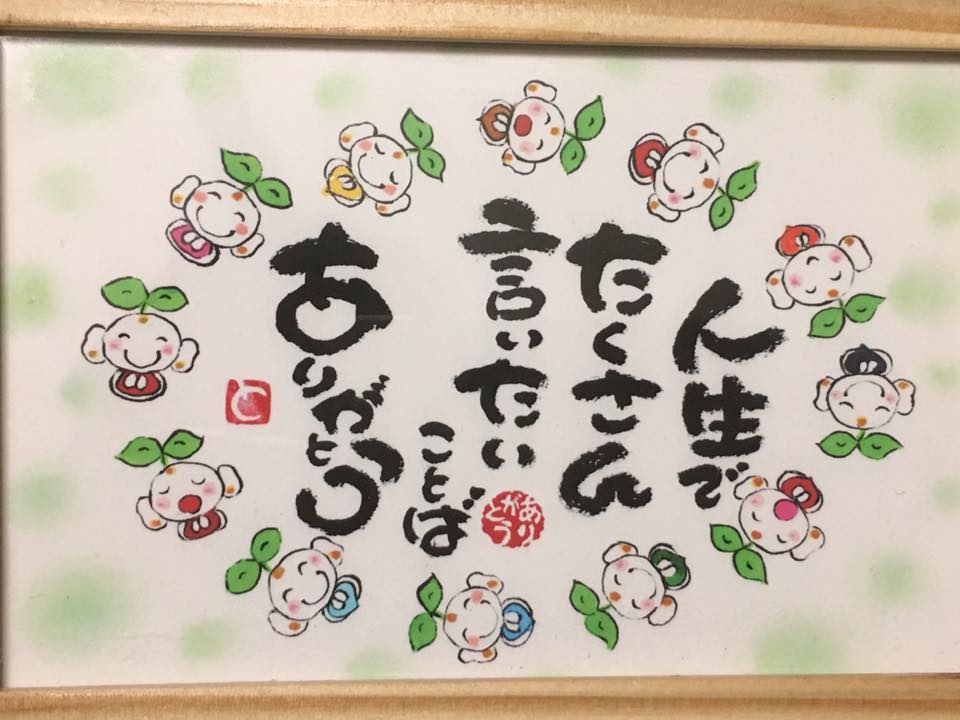 人生で
たくさん
言いたい
ことば
ありがとう
ありがとう